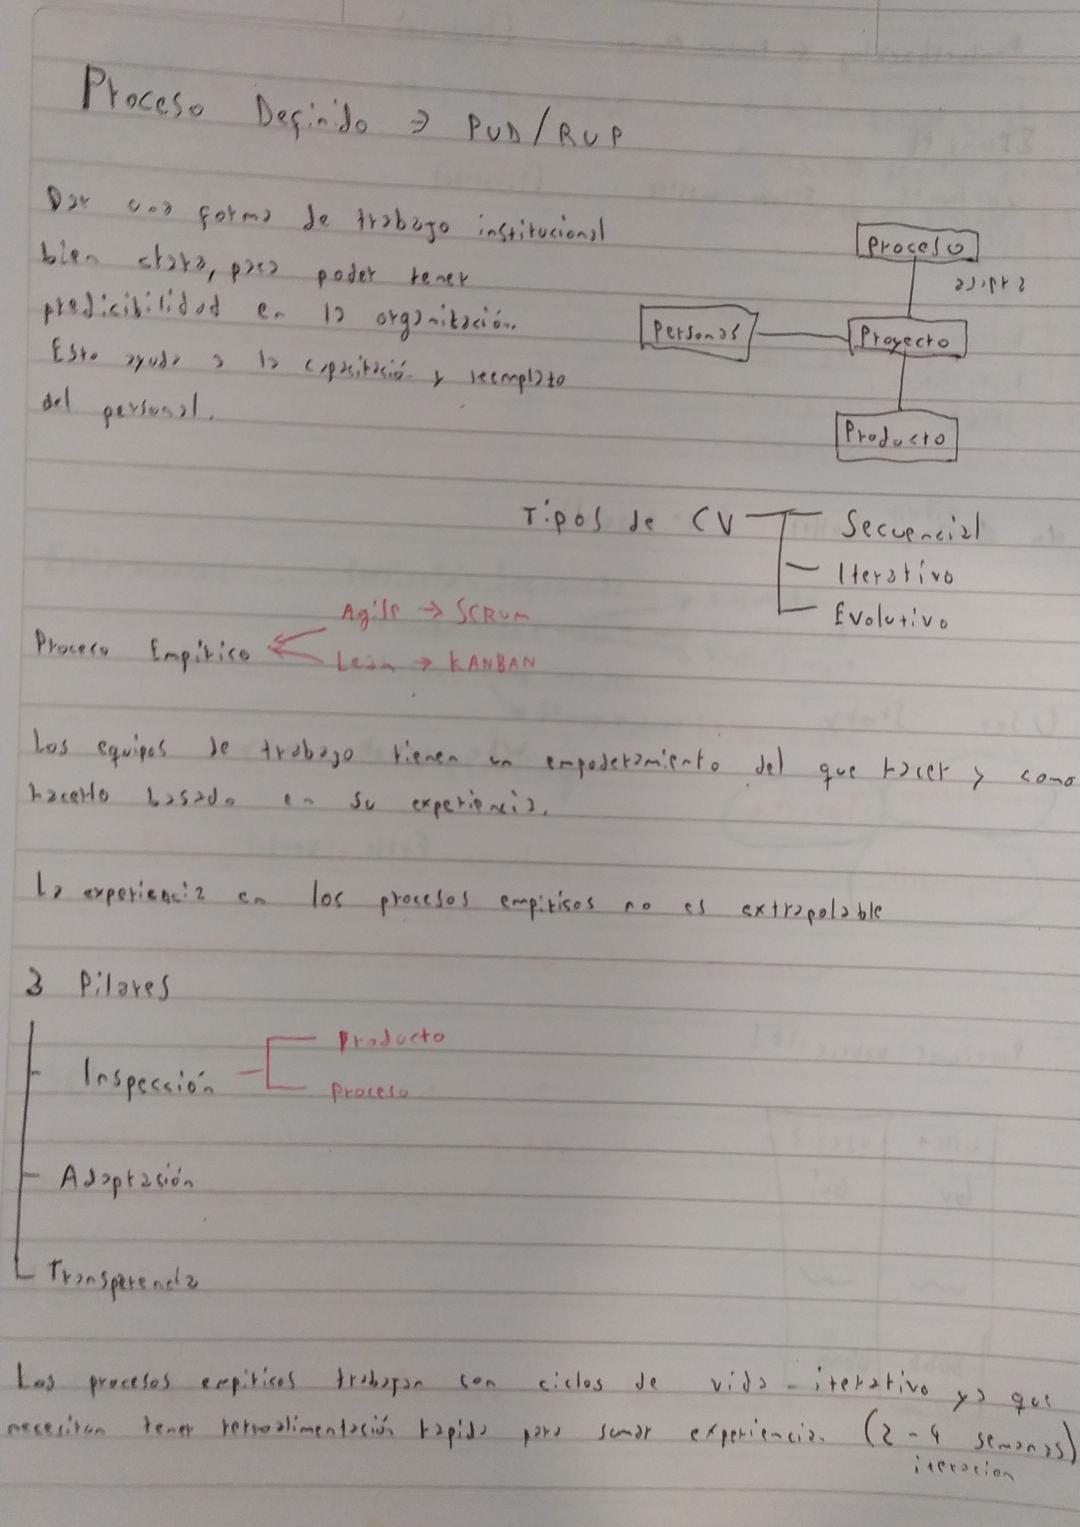 Proceso Definido → PUD/RUP
Dar una forma de trabajo institucional
bien clara, para poder tener
predicibilidad en la organización.
Esto ayuda a la capacitación y reemplazo
del personal.
Proceso
Personas
Proyecto
Producto
Tipos de CV
Secuencial
Iterativo
Evolutivo
Proceso Empírico
Agile → SCRUM
Lean → KANBAN
Los equipos de trabajo tienen un empoderamiento del que hacer y como
hacerlo basado en su experiencia.
La experiencia en los procesos empiricos no es extrapolable
3 Pilares
Inspección
Producto
Proceso
Adaptación
Transparencia
Los procesos empiricos trabajan con ciclos de vida iterativo ya que
necesitan tener retroalimentación rapida para sumar experiencia. (2-4 semanas)
iteracion